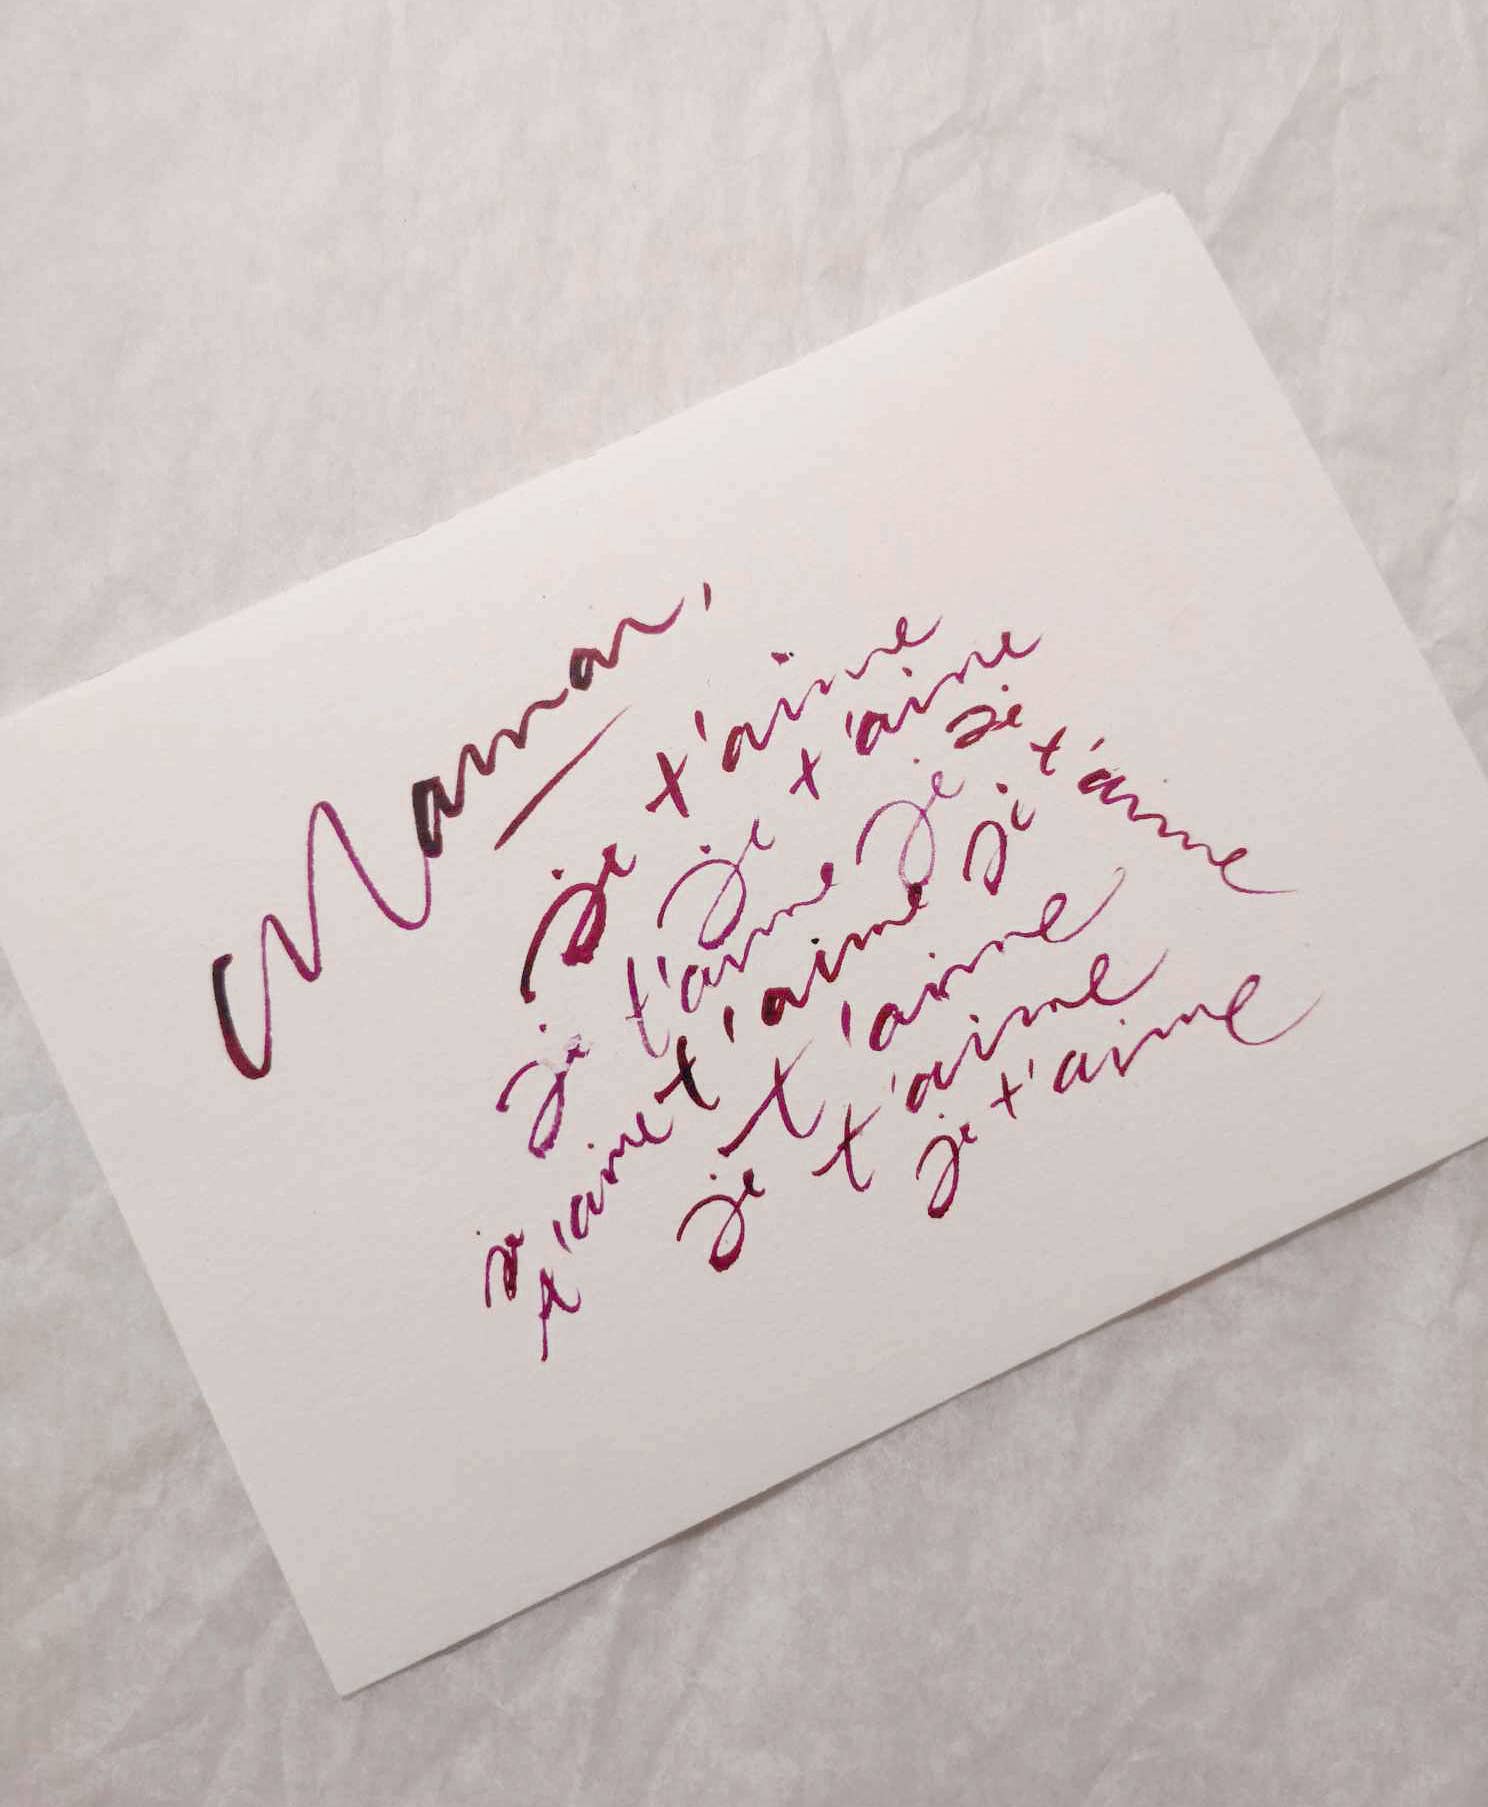 Maman,
je t'aime
je t'aime
je t'aime je je t'aime
je t'aime t'aime je
je t'aime
t'aime
je t'aime